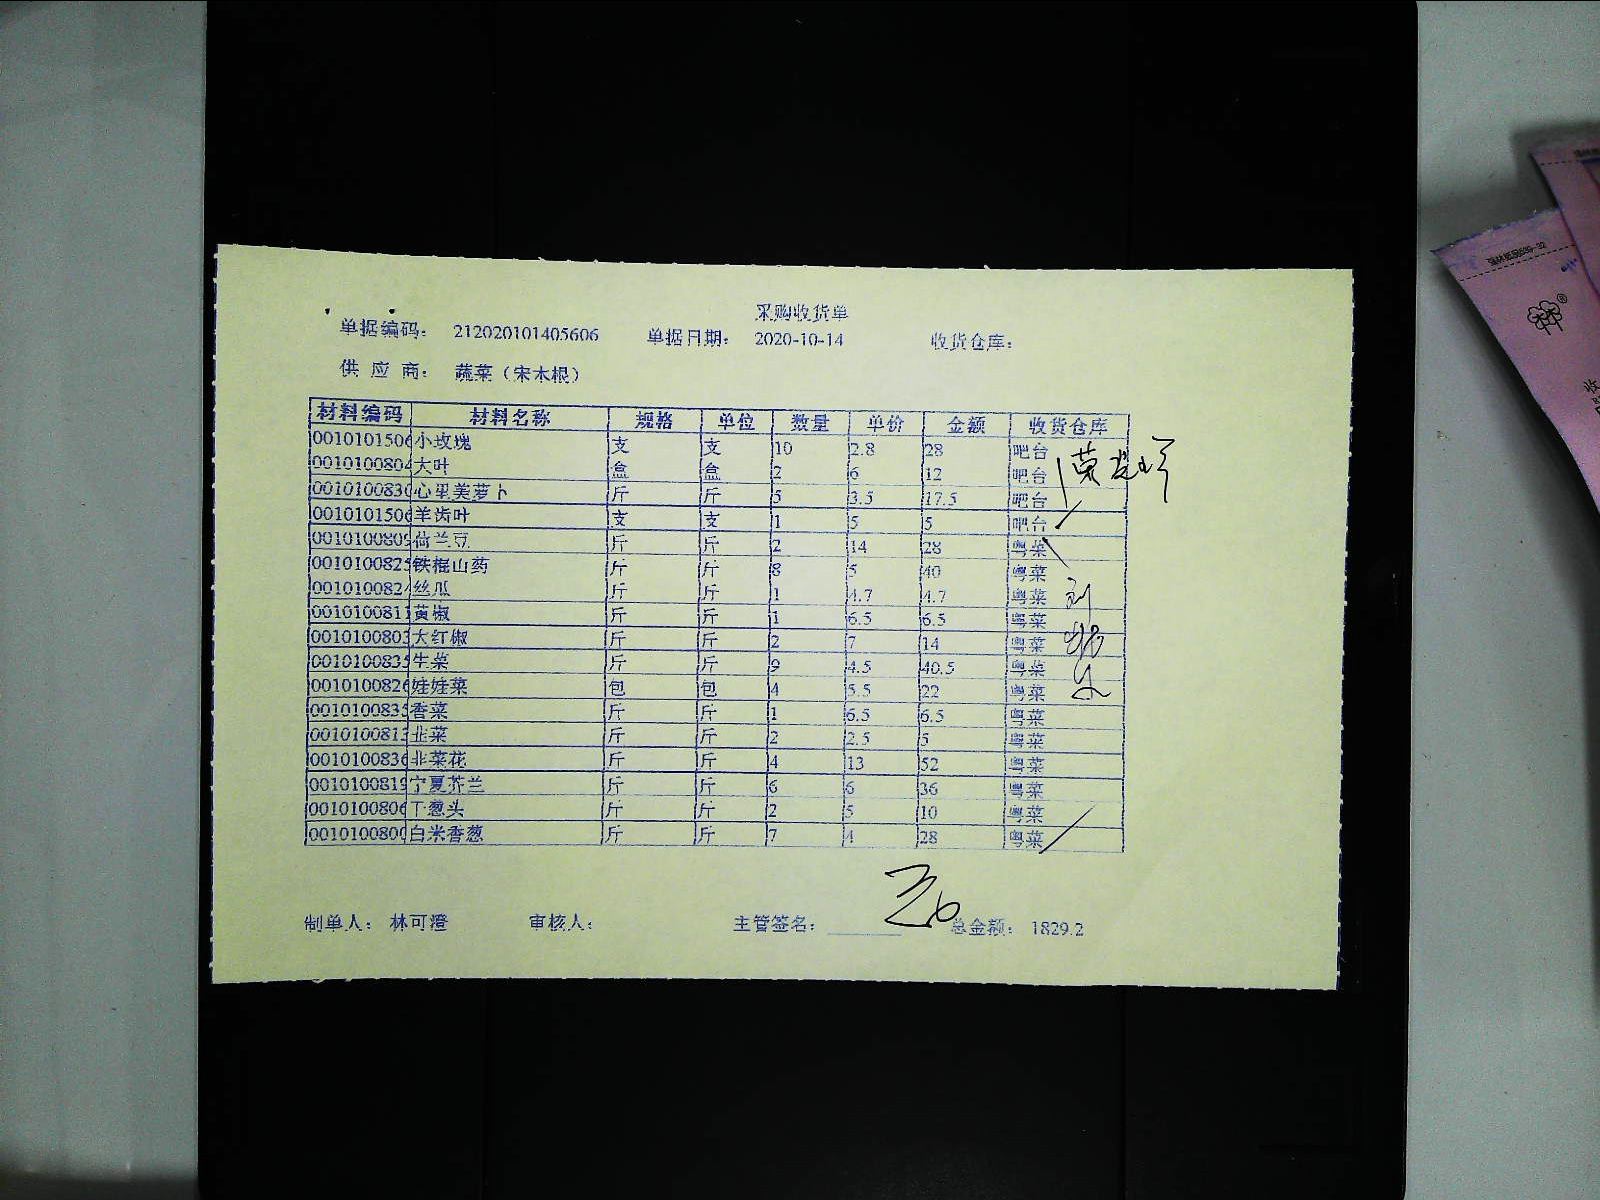 采购收货单
单据编码： 212020101405606 单据日期： 2020-10-14 收货仓库：
供 应 商： 蔬菜（宋木根）
材料编码 材料名称 规格 单位 数量 单价 金额 收货仓库
0010101506 小玫瑰 支 支 10 2.8 28 吧台
0010100804 大叶 盒 盒 2 6 12 吧台
0010100830 心里美萝卜 斤 斤 5 3.5 17.5 吧台
0010101506 羊齿叶 支 支 1 5 5 吧台
0010100809 荷兰豆 斤 斤 2 14 28 粤菜
0010100825 铁棍山药 斤 斤 8 5 40 粤菜
0010100824 丝瓜 斤 斤 1 4.7 4.7 粤菜
0010100811 黄椒 斤 斤 1 6.5 6.5 粤菜
0010100803 大红椒 斤 斤 2 7 14 粤菜
0010100835 生菜 斤 斤 9 4.5 40.5 粤菜
0010100826 娃娃菜 包 包 4 5.5 22 粤菜
0010100835 香菜 斤 斤 1 6.5 6.5 粤菜
0010100813 韭菜 斤 斤 2 2.5 5 粤菜
0010100836 韭菜花 斤 斤 4 13 52 粤菜
0010100819 宁夏芥兰 斤 斤 6 6 36 粤菜
0010100806 干葱头 斤 斤 2 5 10 粤菜
0010100800 白米香葱 斤 斤 7 4 28 粤菜
制单人： 林可澄 审核人： 主管签名： 总金额： 1829.2